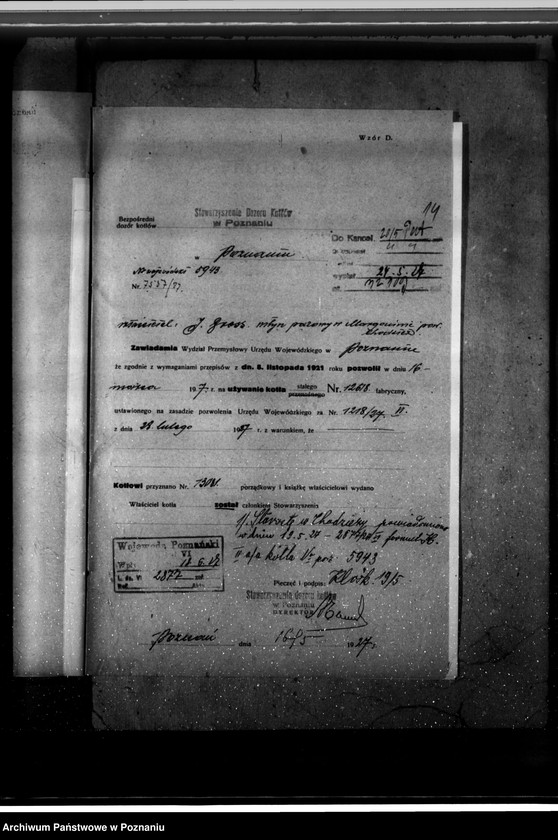 Wzór D.
14
Bezpośredni
dozór kotłów
Stowarzyszenie Dozoru Kotłów
w Poznaniu
Do Kancel. 20/5
w Poznaniu
Nr. 7557/27.
24.5.27
właściciel: J. Gross, młyn parowy w Margoninie pow.
Zawiadamia Wydział Przemysłowy Urzędu Wojewódzkiego w Poznaniu
że zgodnie z wymaganiami przepisów z dn. 8. listopada 1921 roku pozwolił w dniu 16
marca 1927. r. na używanie kotła stałego
przenośnego
Nr. 12618 fabryczny,
ustawionego na zasadzie pozwolenia Urzędu Wojewódzkiego za Nr. 1218/27 II.
z dnia 28 lutego 1927 r. z warunkiem, że
Kotłowi przyznano Nr. porządkowy i książkę właścicielowi wydano
Właściciel kotła został członkiem Stowarzyszenia
1/. Starostę w Chodzieży powiadomiono
w dniu 19.5.27
II a/a kotła
5943
Wojewoda Poznański
VI
Wpł. 18.5.27
L. dz. VI 2877 zał.
Pieczęć i podpis:
19/5
Stowarzyszenie dozoru kotłów
w Poznaniu
DYREKTOR
Poznań dnia 16/5 1927.
Archiwum Państwowe w Poznaniu